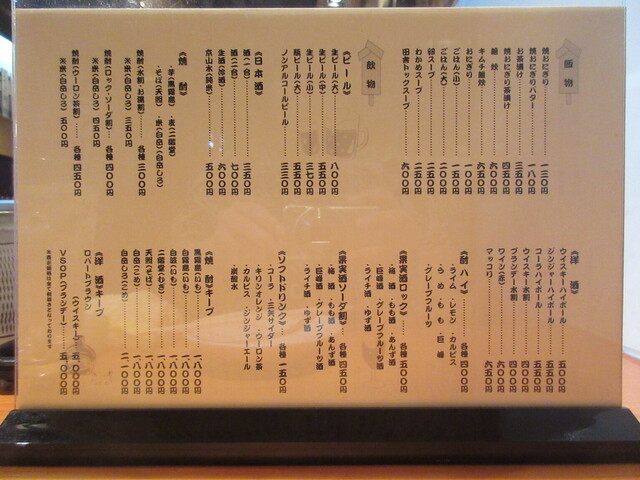 飯物
焼おにぎり……一三〇円
焼おにぎりバター……一八〇円
お茶漬け……三五〇円
焼おにぎり茶漬け……四五〇円
雑炊……六〇〇円
キムチ雑炊……六五〇円
おにぎり……一〇〇円
ごはん(小)……一五〇円
ごはん(大)……二〇〇円
卵スープ……二五〇円
わかめスープ……二五〇円
田舎トックスープ……六〇〇円
飲物
《ビール》
生ビール(大)……八〇〇円
生ビール(中)……五五〇円
生ビール(小)……三七〇円
瓶ビール(大)……五五〇円
ノンアルコールビール……三三〇円
《日本酒》
酒(一合)……三五〇円
酒(二合)……七〇〇円
生酒(冷酒)……六〇〇円
京山水(純米)……五〇〇円
《焼酎》
・芋(黒霧島)・麦(二階堂)
・そば(天照)・米(白岳)(白岳しろ)
焼酎(水割・お湯割)…各種 三〇〇円
※米(白岳しろ) 三五〇円
焼酎(ロック・ソーダ割)…各種 四〇〇円
※米(白岳しろ) 四五〇円
焼酎(ウーロン茶割)……各種 四五〇円
※米(白岳しろ) 五〇〇円
《洋酒》
ウイスキーハイボール……五〇〇円
ジンジャーハイボール……五五〇円
コーラハイボール……五五〇円
ウイスキー水割……四〇〇円
ブランデー水割……四〇〇円
ワイン(赤)……四〇〇円
マッコリ……六五〇円
《酎ハイ》……各種 四〇〇円
・ライム・レモン・カルピス
・うめ・もも・巨峰
・グレープフルーツ
《果実酒ロック》……各種 五〇〇円
・梅酒・もも酒・あんず酒
・巨峰酒・グレープフルーツ酒
・ライチ酒・ゆず酒
《果実酒ソーダ割》…各種 四五〇円
・梅酒・もも酒・あんず酒
・巨峰酒・グレープフルーツ酒
・ライチ酒・ゆず酒
《ソフトドリンク》…各種 一五〇円
・コーラ・三矢サイダー
・キリンオレンジ・ウーロン茶
・カルピス・ジンジャーエール
・炭酸水
《焼酎》キープ
黒霧島(いも)……一、八〇〇円
白霧島(いも)……一、八〇〇円
白波(いも)……一、八〇〇円
二階堂(むぎ)……一、八〇〇円
天照(そば)……一、八〇〇円
白岳(こめ)……一、八〇〇円
白岳しろ(こめ)……二、一〇〇円
《洋酒》キープ
ロバートブラウン
(ウイスキー) 五、〇〇〇円
VSOP(ブランデー)……五、〇〇〇円